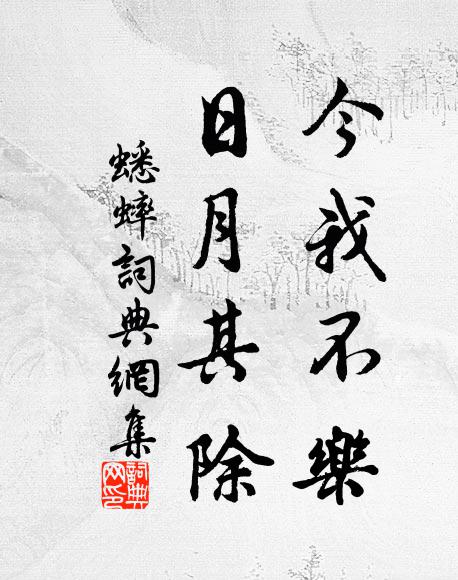 今我不樂
日月其除
蟋蟀詞典網集
詞典
网印